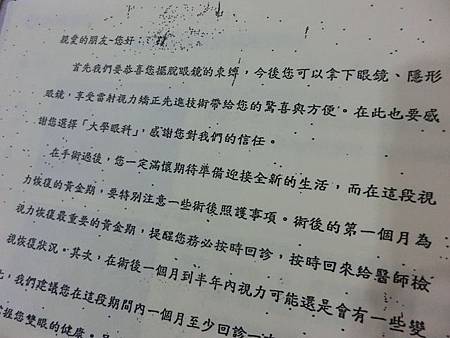 親愛的朋友-您好：
首先我們要恭喜您擺脫眼鏡的束縛，今後您可以拿下眼鏡、隱形
眼鏡，享受雷射視力矯正先進技術帶給您的驚喜與方便。在此也要感
謝您選擇「大學眼科」，感謝您對我們的信任。
在手術過後，您一定滿懷期待準備迎接全新的生活，而在這段視
力恢復的黃金期，要特別注意一些術後照護事項。術後的第一個月為
視力恢復最重要的黃金期，提醒您務必按時回診，按時回來給醫師檢
視恢復狀況。其次，在術後一個月到半年內視力可能還是會有一些變
，我們建議您在這段期間內一個月至少回診一
握您雙眼的健康。